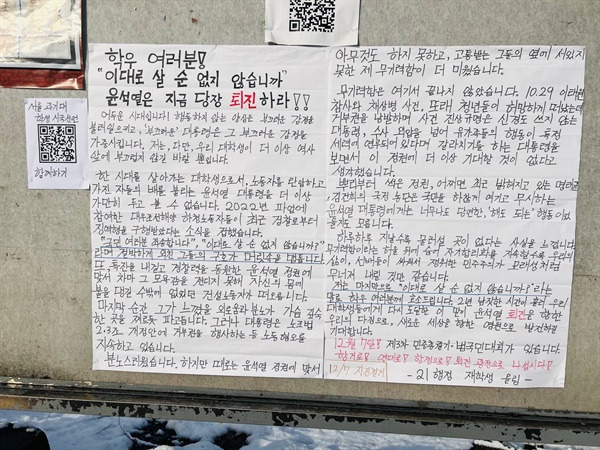 서울 과기대
학생 시국선언
함께하기
학우 여러분!
"이대로 살 순 없지 않습니까"
윤석열은 지금 당장 퇴진하라!!
어두운 시대입니다! 행동하지 않는 양심은 부끄러운 감정을
불러일으키고, 부끄러운 대통령은 그 부끄러운 감정을
가중시킵니다. 저는, 다만, 우리 대학생이 더 이상 역사
앞에 부끄럽지 않길 바랄 뿐입니다.
한 시대를 살아가는 대학생으로서, 노동자를 탄압하고
가진 자들의 배를 불리는 윤석열 대통령을 더 이상
가만히 두고 볼 수 없습니다. 2022년 파업에
참여한 대우조선해양 하청노동자들이 최근 검찰로부터
징역형을 구형받았다는 소식을 접했습니다.
"국민 여러분 죄송합니다", "이대로 살 순 없지 않습니까?"
라며 절박하게 외친 그들의 구호가 머릿속을 맴돕니다.
또, 특진을 내걸고 경찰력을 동원한 윤석열 정권에
맞서 차마 그 모욕감을 견디지 못해 자신의 몸에
불을 댕길 수밖에 없었던 건설노동자가 떠오릅니다.
마지막 순간 그가 느꼈을 외로움과 분노가 가슴 깊숙
한 곳을 찌르듯 파고듭니다. 그러나 대통령은 노조법
2·3조 개정안에 거부권을 행사하는 등 노동혐오를
지속하고 있습니다.
분노스러웠습니다. 하지만 때로는 윤석열 정권에 맞서
아무것도 하지 못하고, 고통받는 그들의 옆에 서있지
못한 제 무기력함이 더 미웠습니다.
무기력함은 여기서 끝나지 않았습니다. 10.29 이태원
참사와 채상병 사건, 또래 청년들이 허망하게 떠났는데
거부권을 남발하며 사건 진상규명은 신경도 쓰지 않는
대통령, 수사 외압을 넘어 유가족들의 행동이 특정
세력에 연루되어 있다며 갈라치기를 하는 대통령을
보면서 이 정권에 더 이상 기대할 것이 없다고
생각했습니다.
뿌리부터 썩은 정권, 어쩌면 최근 밝혀지고 있는 명태균,
김건희의 국정 농단은 국민을 하찮게 여기고 무시하는
윤석열 대통령에게는 너무나도 당연한, '해도 되는' 행동이었
을지도 모릅니다.
하루하루 지날수록 물러설 곳이 없다는 사실을 느낍니다.
무너져 내릴 것만 같습니다.
저는 마지막으로 "이대로 살 순 없지 않습니까?"라는
말로 학우 여러분께 호소드립니다. 2년 남짓한 시간이 흘러 우리
대학생들에게 다시 도달한 이 말이 윤석열 퇴진을 향한
우리의 다짐으로, 새로운 세상을 향한 염원으로 발전하길
기대합니다.
12월 7일! 제3차 민중총궐기·범국민대회가 있습니다.
함께해요! 연대해요! 함성으로! 퇴진 광장으로 나섭시다!
12/7 자진철거
- 21 행정 재학생 올림 -